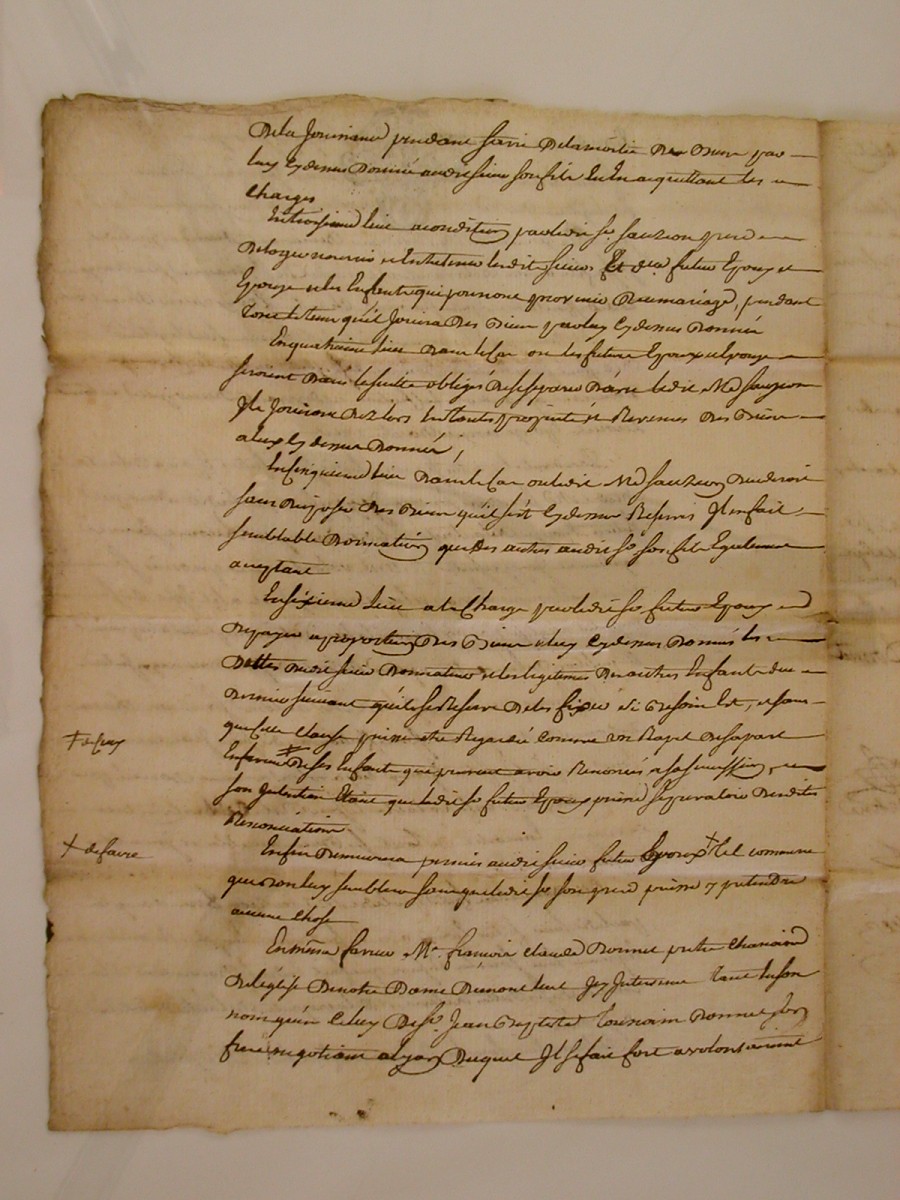 De la Jouissance pendant sa vie de la moitié des Biens par
luy Cy dessus Donnés audit sieur son fils En En acquittant les
Charges
En troisieme lieu a condition par ledit Sr sauzeon pere
De loger nourrir et Entretenir lesdits sieur Et dlle futurs Epoux et
Epouse et les Enfants qui pourront provenir Du mariage, pendant
tout le tems qu'il Jouira Des Biens par luy Cy dessus Donnés
En quatrieme lieu Dans le Cas ou les futurs Epoux et Epouse
seroient Dans la suitte obligés De se separer D'avec ledit Me sauzeon
Ils Jouiront Dez lors En toute proprieté et Revenus Des Biens
a Eux Cy dessus Donnés,
En Cinquieme lieu Dans le Cas ou ledit Me sauzeon Viendroit
sans Disposer Des Biens qu'il s'est Cy dessus Reservés Il en fait
semblable Donnation que Des autres audit Sr son fils Egalement
acceptant
En sixieme lieu a la Charge par ledit Sr futur Epoux
De payer a proportion Des Biens a luy Cy dessus Donnés les
Dettes Dudit sieur Donnateur et les legitimes Des autres Enfants du
Dernier suivant qu'il se Reserve De les fixer si Besoin Est, et sans
que cette Clause puisse etre Regardée Comme un Rapel De sa part
En faveur ‡ De ses Enfants qui peuvent avoir Renoncés a sa succession,
son Intention Etant que ledit Sr futur Epoux prenne Desdites
Renonciations
‡ de ceux
Enfin Demeurera permis audit sieur futur Epoux + tel commerce
que Bon luy semblera sans que ledit Sr son pere puisse y pretendre
aucune Chose
+ de faire
En même faveur Mre françois Claude Bonnet pretre Chanoine
De l'église De notre Dame De Jcy Intervenu tant En son
nom qu'en Celuy De Sr Jean Baptiste Toussaint Bonnet son
frere negotiant a lyon Duquel Il se fait fort a volontairement